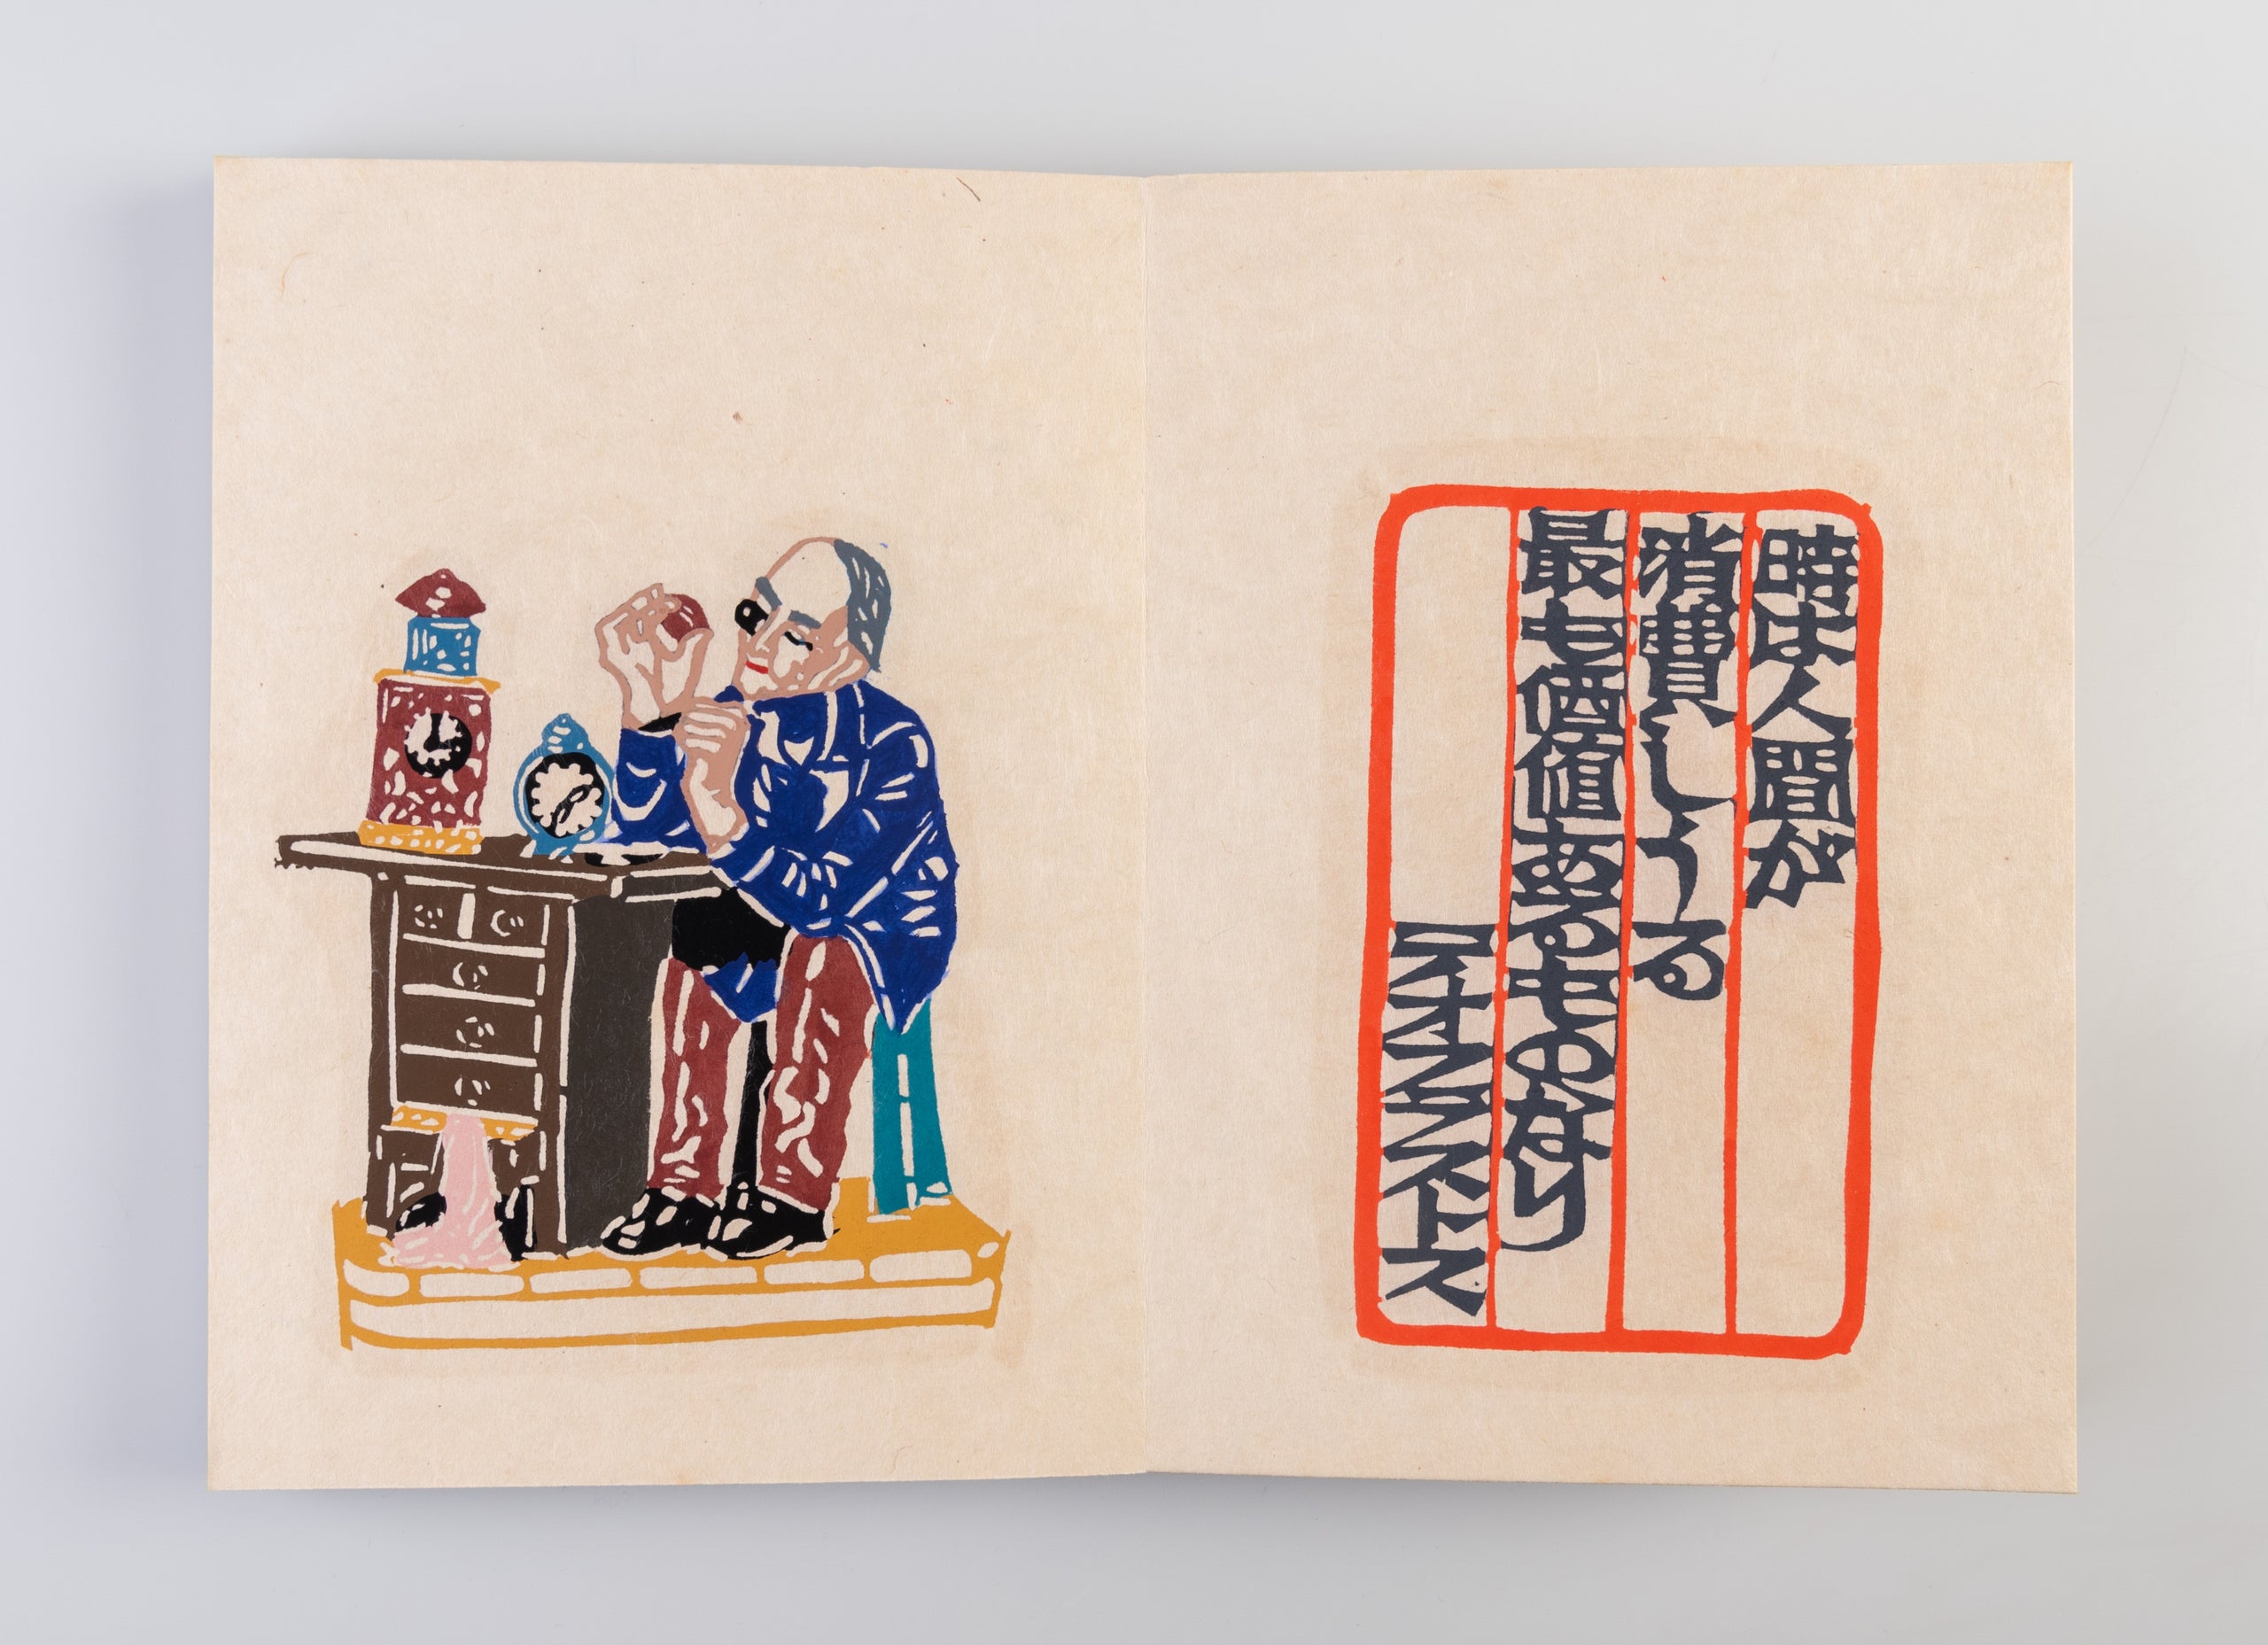 時は人間が
消費しうる
最も価値あるものなり
テオフラストス